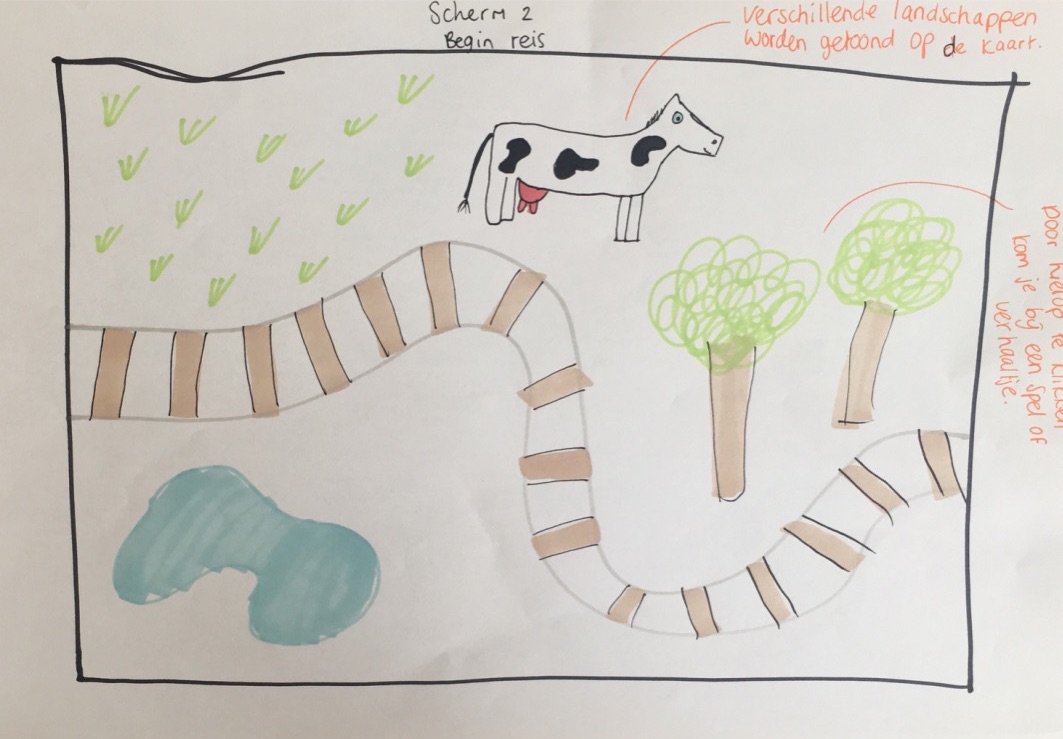 Scherm 2
Begin reis
verschillende landschappen
worden getoond op de kaart.
Door hierop te klikken
kom je bij een spel of
verhaaltje.